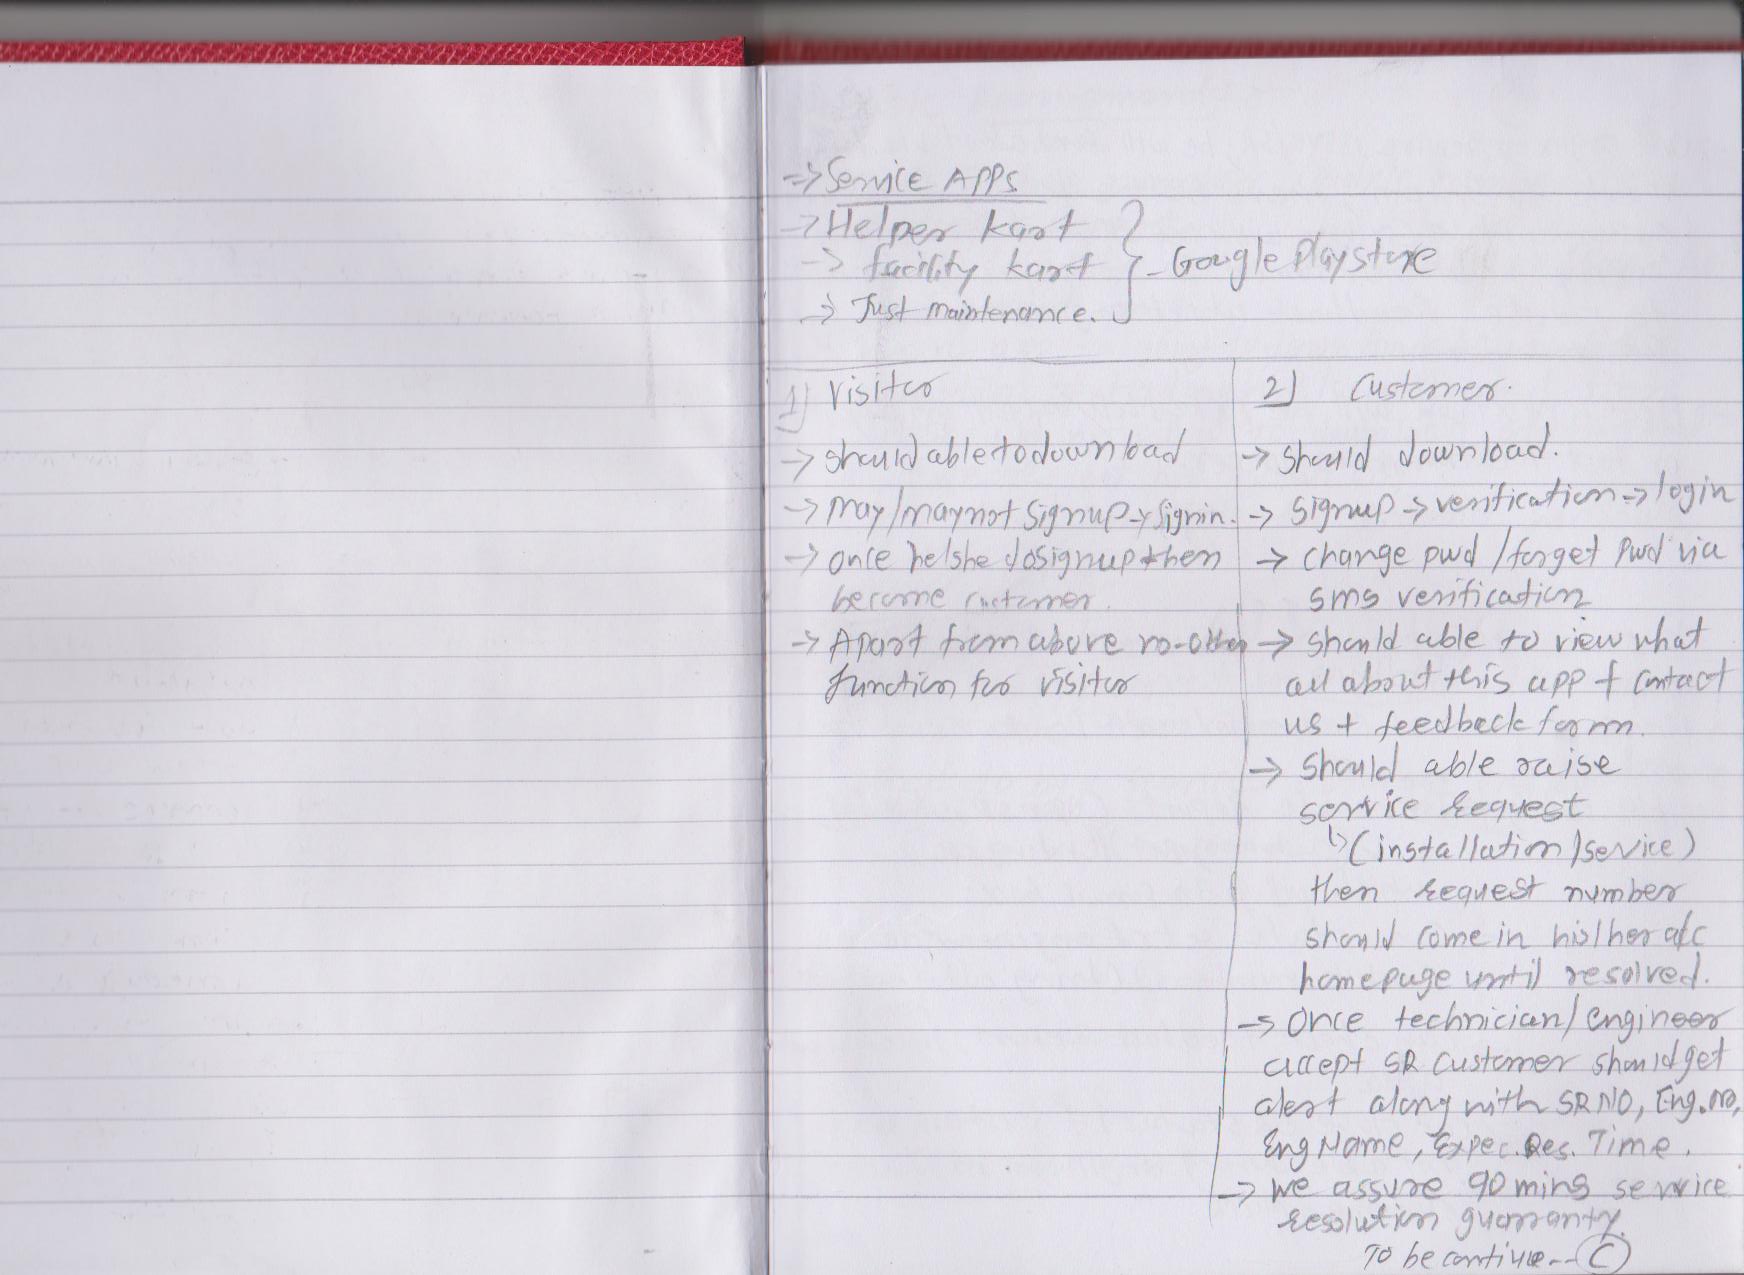 → Service APPs
→ Helper kart
→ facility kart } - Google Playstore
→ Just maintenance.
1) Visitor
→ should able to download
→ may/maynot Signup → Signin.
→ once he/she do signup then
become customer.
→ Apart from above no-other
function for visitor
2) Customer.
→ should download.
→ signup → verification → login
→ change pwd / forget pwd via
sms verification
→ should able to view what
all about this app + contact
us + feedback form.
→ should able raise
service request
↳ (installation/service)
then request number
should come in his/her a/c
homepage until resolved.
→ Once technician/engineer
accept SR customer should get
alert along with SR NO, Eng. no,
Eng Name, Expec. Res. Time.
→ We assure 90 mins service
resolution guarranty.
To be continue... C